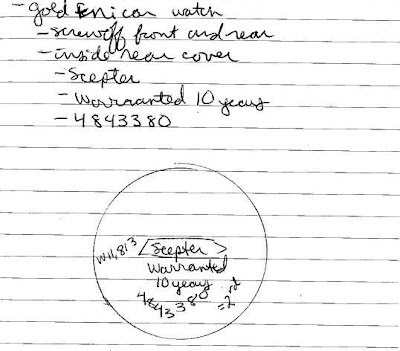 - gold Enicar watch
- screwoff front and rear
- inside rear cover
- Scepter
- Warranted 10 years
- 4843380
Scepter
Warranted
10 years
4843380
=2rd